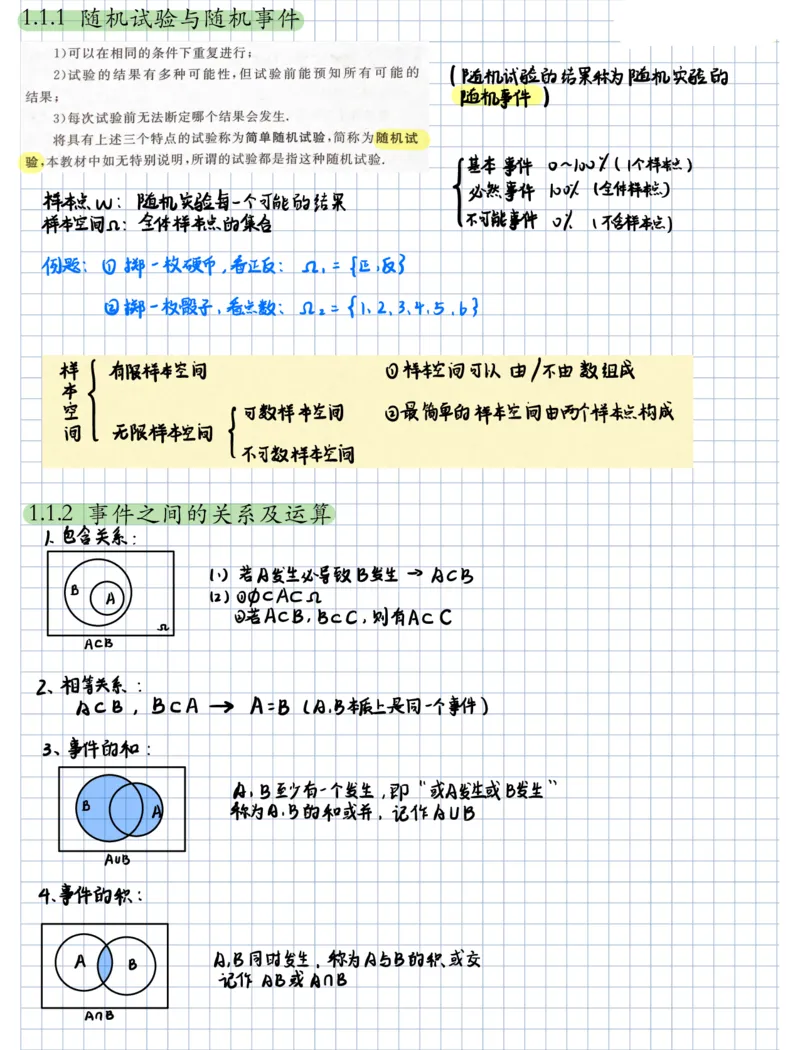 1.1.1 随机试验与随机事件
1)可以在相同的条件下重复进行;
2)试验的结果有多种可能性,但试验前能预知所有可能的
结果;
3)每次试验前无法断定哪个结果会发生.
将具有上述三个特点的试验称为简单随机试验,简称为随机试
验,本教材中如无特别说明,所谓的试验都是指这种随机试验.
(随机试验的结果称为随机实验的
随机事件)
基本事件 0~100%(1个样本点)
必然事件 100% (全体样本点)
不可能事件 0% (不含样本点)
样本点ω: 随机实验每一个可能的结果
样本空间Ω: 全体样本点的集合
例题: ① 掷一枚硬币,看正反: Ω₁={正,反}
②掷一枚骰子,看点数: Ω₂={1,2,3,4,5,6}
样本空间
有限样本空间
无限样本空间
可数样本空间
不可数样本空间
①样本空间可以由/不由数组成
②最简单的样本空间由两个样本点构成
1.1.2 事件之间的关系及运算
1、包含关系:
B
A
Ω
A⊂B
(1) 若A发生必导致B发生→A⊂B
(2) ①∅⊂A⊂Ω
②若A⊂B,B⊂C,则有A⊂C
2、相等关系:
A⊂B, B⊂A → A=B (A,B本质上是同一个事件)
3、事件的和:
B
A
A∪B
A,B至少有一个发生,即“或A发生或B发生”
称为A,B的和或并,记作A∪B
4、事件的积:
A
B
A∩B
A,B同时发生,称为A与B的积或交
记作 AB或A∩B